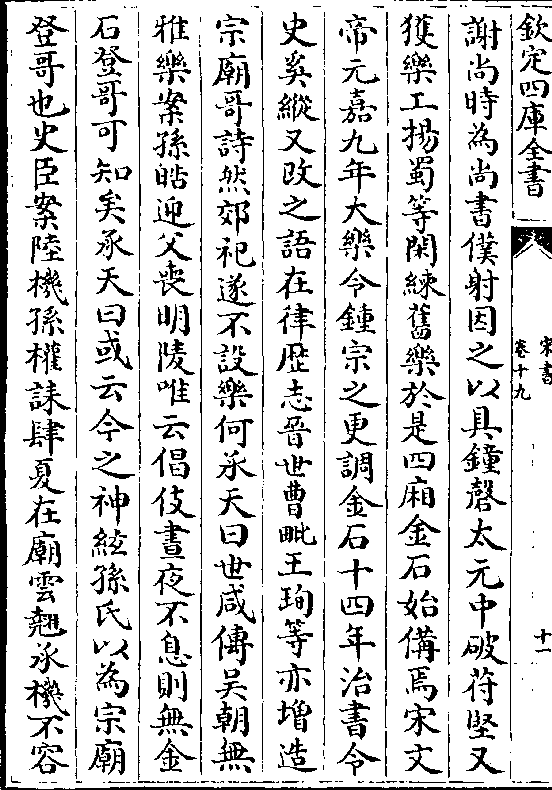 欽定四庫全書
宋書
卷十九
十一
謝尚時為尚書僕射因之以具鐘磬太元中破苻堅又
獲樂工揚蜀等閑練舊樂於是四廂金石始備焉宋文
帝元嘉九年大樂令鍾宗之更調金石十四年治書令
史奚縱又改之語在律歴志晉世曹毗王珣等亦增造
宗廟哥詩然郊祀遂不設樂何承天曰世咸傳吳朝無
雅樂案孫皓迎父喪明陵唯云倡伎晝夜不息則無金
石登哥可知矣承天曰或云今之神絃孫氏以為宗廟
登哥也史臣案陸機孫權誄肆夏在廟雲翹承機不容